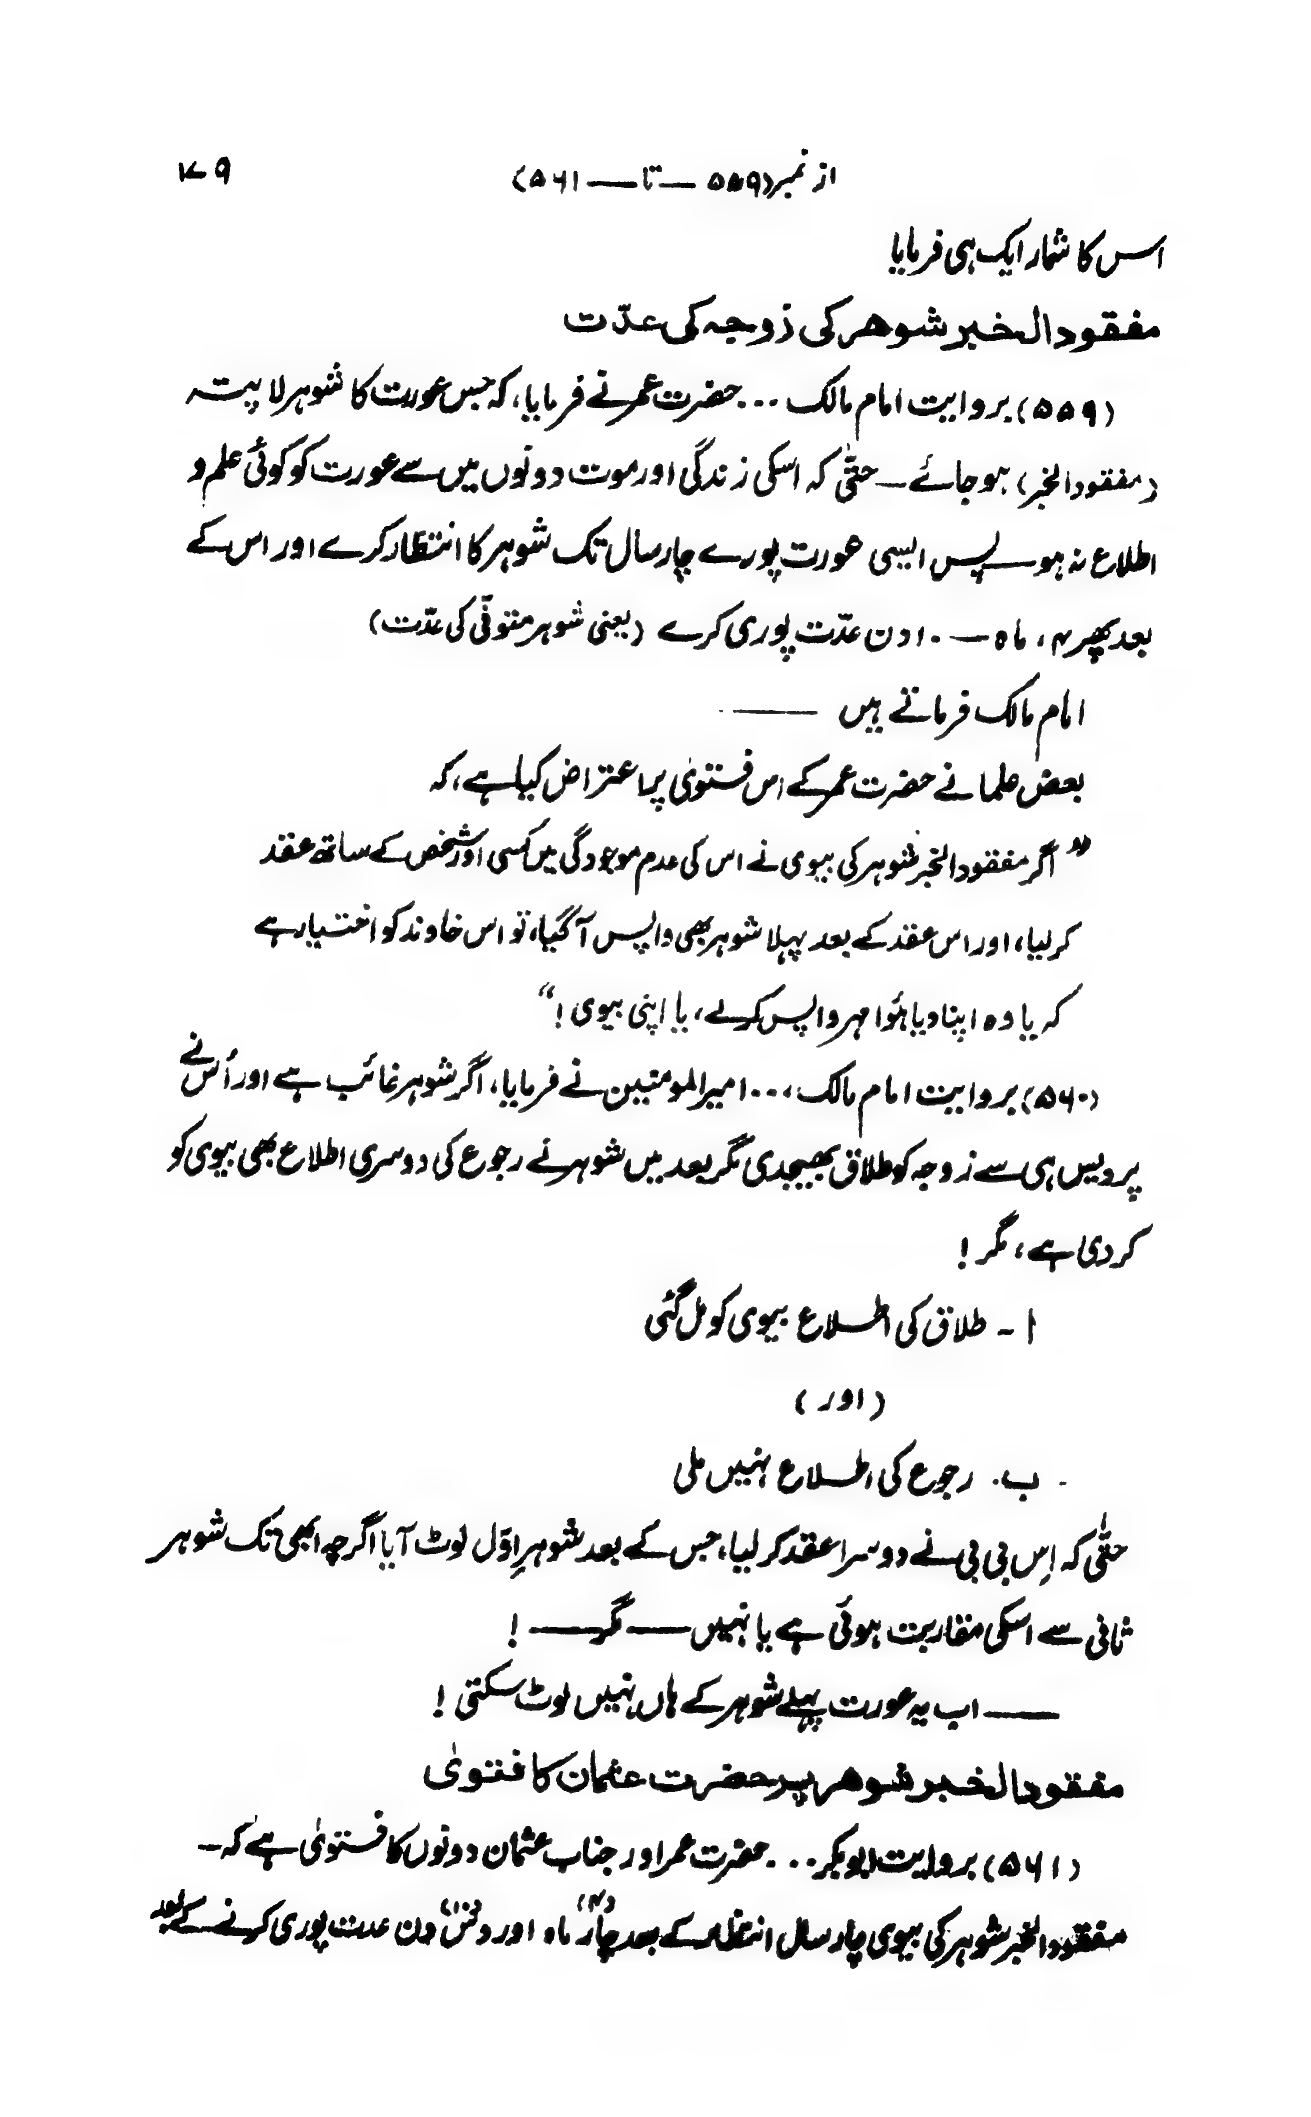 از نمبر (۵۵۹ — تا — ۵۶۱) ۷۰۹
اس کا شمار ایک ہی فرمایا
مفقودالخبر شوھر کی زوجہ کی عدّت
(۵۵۹) بروایت امام مالک ... حضرت عمر نے فرمایا، کہ جس عورت کا شوہر لاپتہ
(مفقودالخبر) ہو جائے — حتّٰی کہ اسکی زندگی اور موت دونوں میں سے عورت کو کوئی علم و
اطلاع نہ ہو — پس ایسی عورت پورے چار سال تک شوہر کا انتظار کرے اور اس کے
بعد پھر ۴، ماہ — ۱۰ دن عدّت پوری کرے (یعنی شوہر متوفّٰی کی عدّت)
امام مالک فرماتے ہیں ———
بعض علما نے حضرت عمر کے اس فتویٰ پر اعتراض کیا ہے، کہ
”اگر مفقودالخبر شوہر کی بیوی نے اس کی عدم موجودگی میں کسی اور شخص کے ساتھ عقد
کر لیا، اور اس عقد کے بعد پہلا شوہر بھی واپس آ گیا، تو اس خاوند کو اختیار ہے
کہ یا وہ اپنا دیا ہُوا مہر واپس کرلے، یا اپنی بیوی !“
(۵۶۰) بروایت امام مالک، ... امیرالمومنین نے فرمایا، اگر شوہر غائب ہے اور اُس نے
پردیس ہی سے زوجہ کو طلاق بھیجدی مگر بعد میں شوہر نے رجوع کی دوسری اطلاع بھی بیوی کو
کر دی ہے، مگر !
ا - طلاق کی اطلاع بیوی کو مل گئی
(اور)
- ب. رجوع کی اطلاع نہیں ملی
حتّٰی کہ اِس بی بی نے دوسرا عقد کر لیا، جس کے بعد شوہرِ اوّل لوٹ آیا اگرچہ ابھی تک شوہر
ثانی سے اسکی مقاربت ہوئی ہے یا نہیں — مگر — !
— اب یہ عورت پہلے شوہر کے ہاں نہیں لوٹ سکتی !
مفقودالخبر شوھر پر حضرت عثمان کا فتویٰ
(۵۶۱) بروایت ابوبکر ... حضرت عمر اور جناب عثمان دونوں کا فتویٰ ہے کہ -
مفقودالخبر شوہر کی بیوی چار سال انتظار کے بعد چار (۴) ماہ اور دس (۱۰) دن عدت پوری کرنے کے بعد